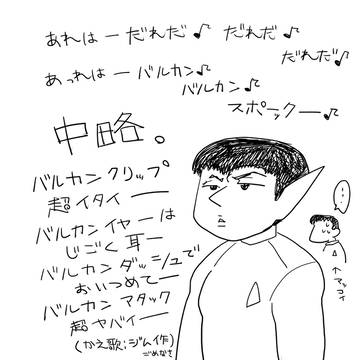 あれはーだれだ♪ だれだ♪
だれだ♪
あっれはーバルカン♪
バルカン♪
スポックー♪
中略。
バルカンクリップ
超イタイー
バルカンイヤーは
じごく耳ー
バルカンダッシュで
おいつめてー
バルカンアタック
超ヤバイー
(かえ歌:ジム作)
ごめなさ
…
↑マッコイ